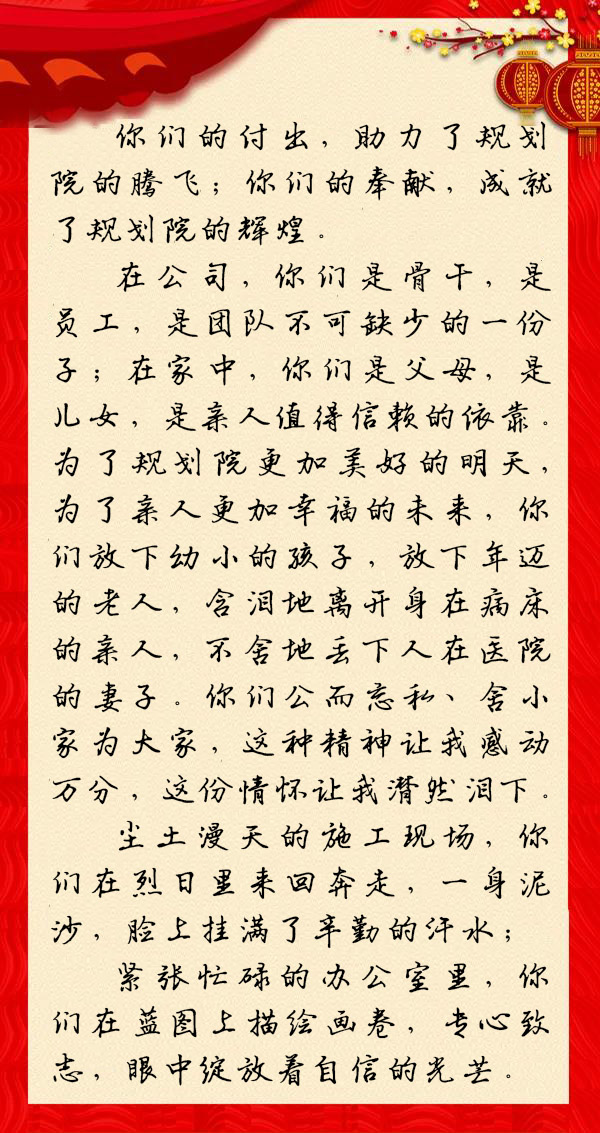 你们的付出，助力了规划
院的腾飞；你们的奉献，成就
了规划院的辉煌。
在公司，你们是骨干，是
员工，是团队不可缺少的一份
子；在家中，你们是父母，是
儿女，是亲人值得信赖的依靠。
为了规划院更加美好的明天，
为了亲人更加幸福的未来，你
们放下幼小的孩子，放下年迈
的老人，含泪地离开身在病床
的亲人，不舍地丢下人在医院
的妻子。你们公而忘私、舍小
家为大家，这种精神让我感动
万分，这份情怀让我潸然泪下。
尘土漫天的施工现场，你
们在烈日里来回奔走，一身泥
沙，脸上挂满了辛勤的汗水；
紧张忙碌的办公室里，你
们在蓝图上描绘画卷，专心致
志，眼中绽放着自信的光芒。